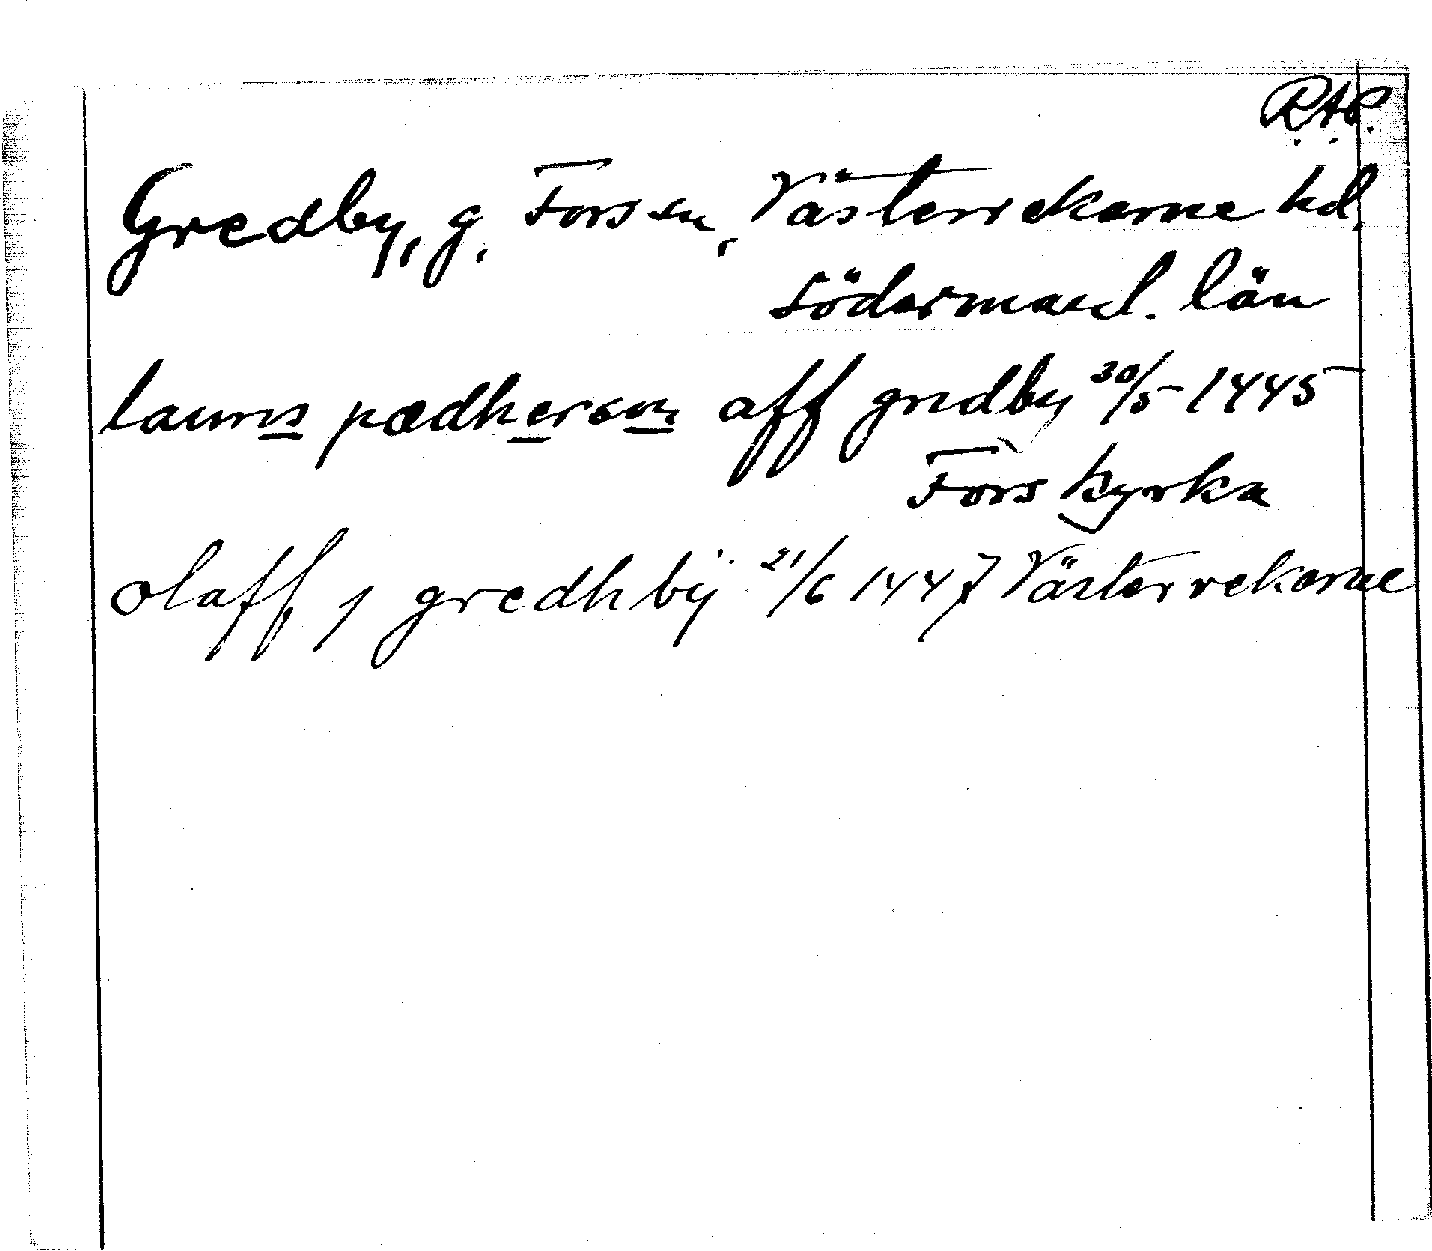 R.A.P.
Gredby, g. Fors sn, Västerrekarne hd.
Södermanl. län
laurns pædherson aff gredby 30/5 1445
Fors kyrka
olaff j gredhbÿ 21/6 1447 Västerrekarne